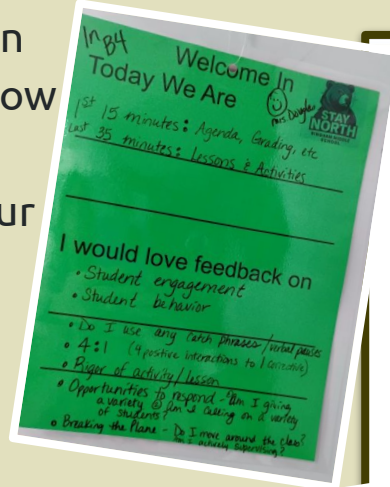 n
ow
ur
In B4
Welcome In
Today We Are
Mrs. Douglas
STAY
NORTH
1st 15 minutes: Agenda, Grading, etc
Last 35 minutes: Lessons & Activities
I would love feedback on
• Student engagement
• Student behavior
• Do I use any catch phrases/verbal pauses
• 4:1 (4 positive interactions to 1 corrective)
• Rigor of activity/lesson
• Opportunities to respond - "Am I giving
a variety @ Am I calling on a variety
of students?
• Breaking the Plane - Do I move around the class?
Am I actively supervising?